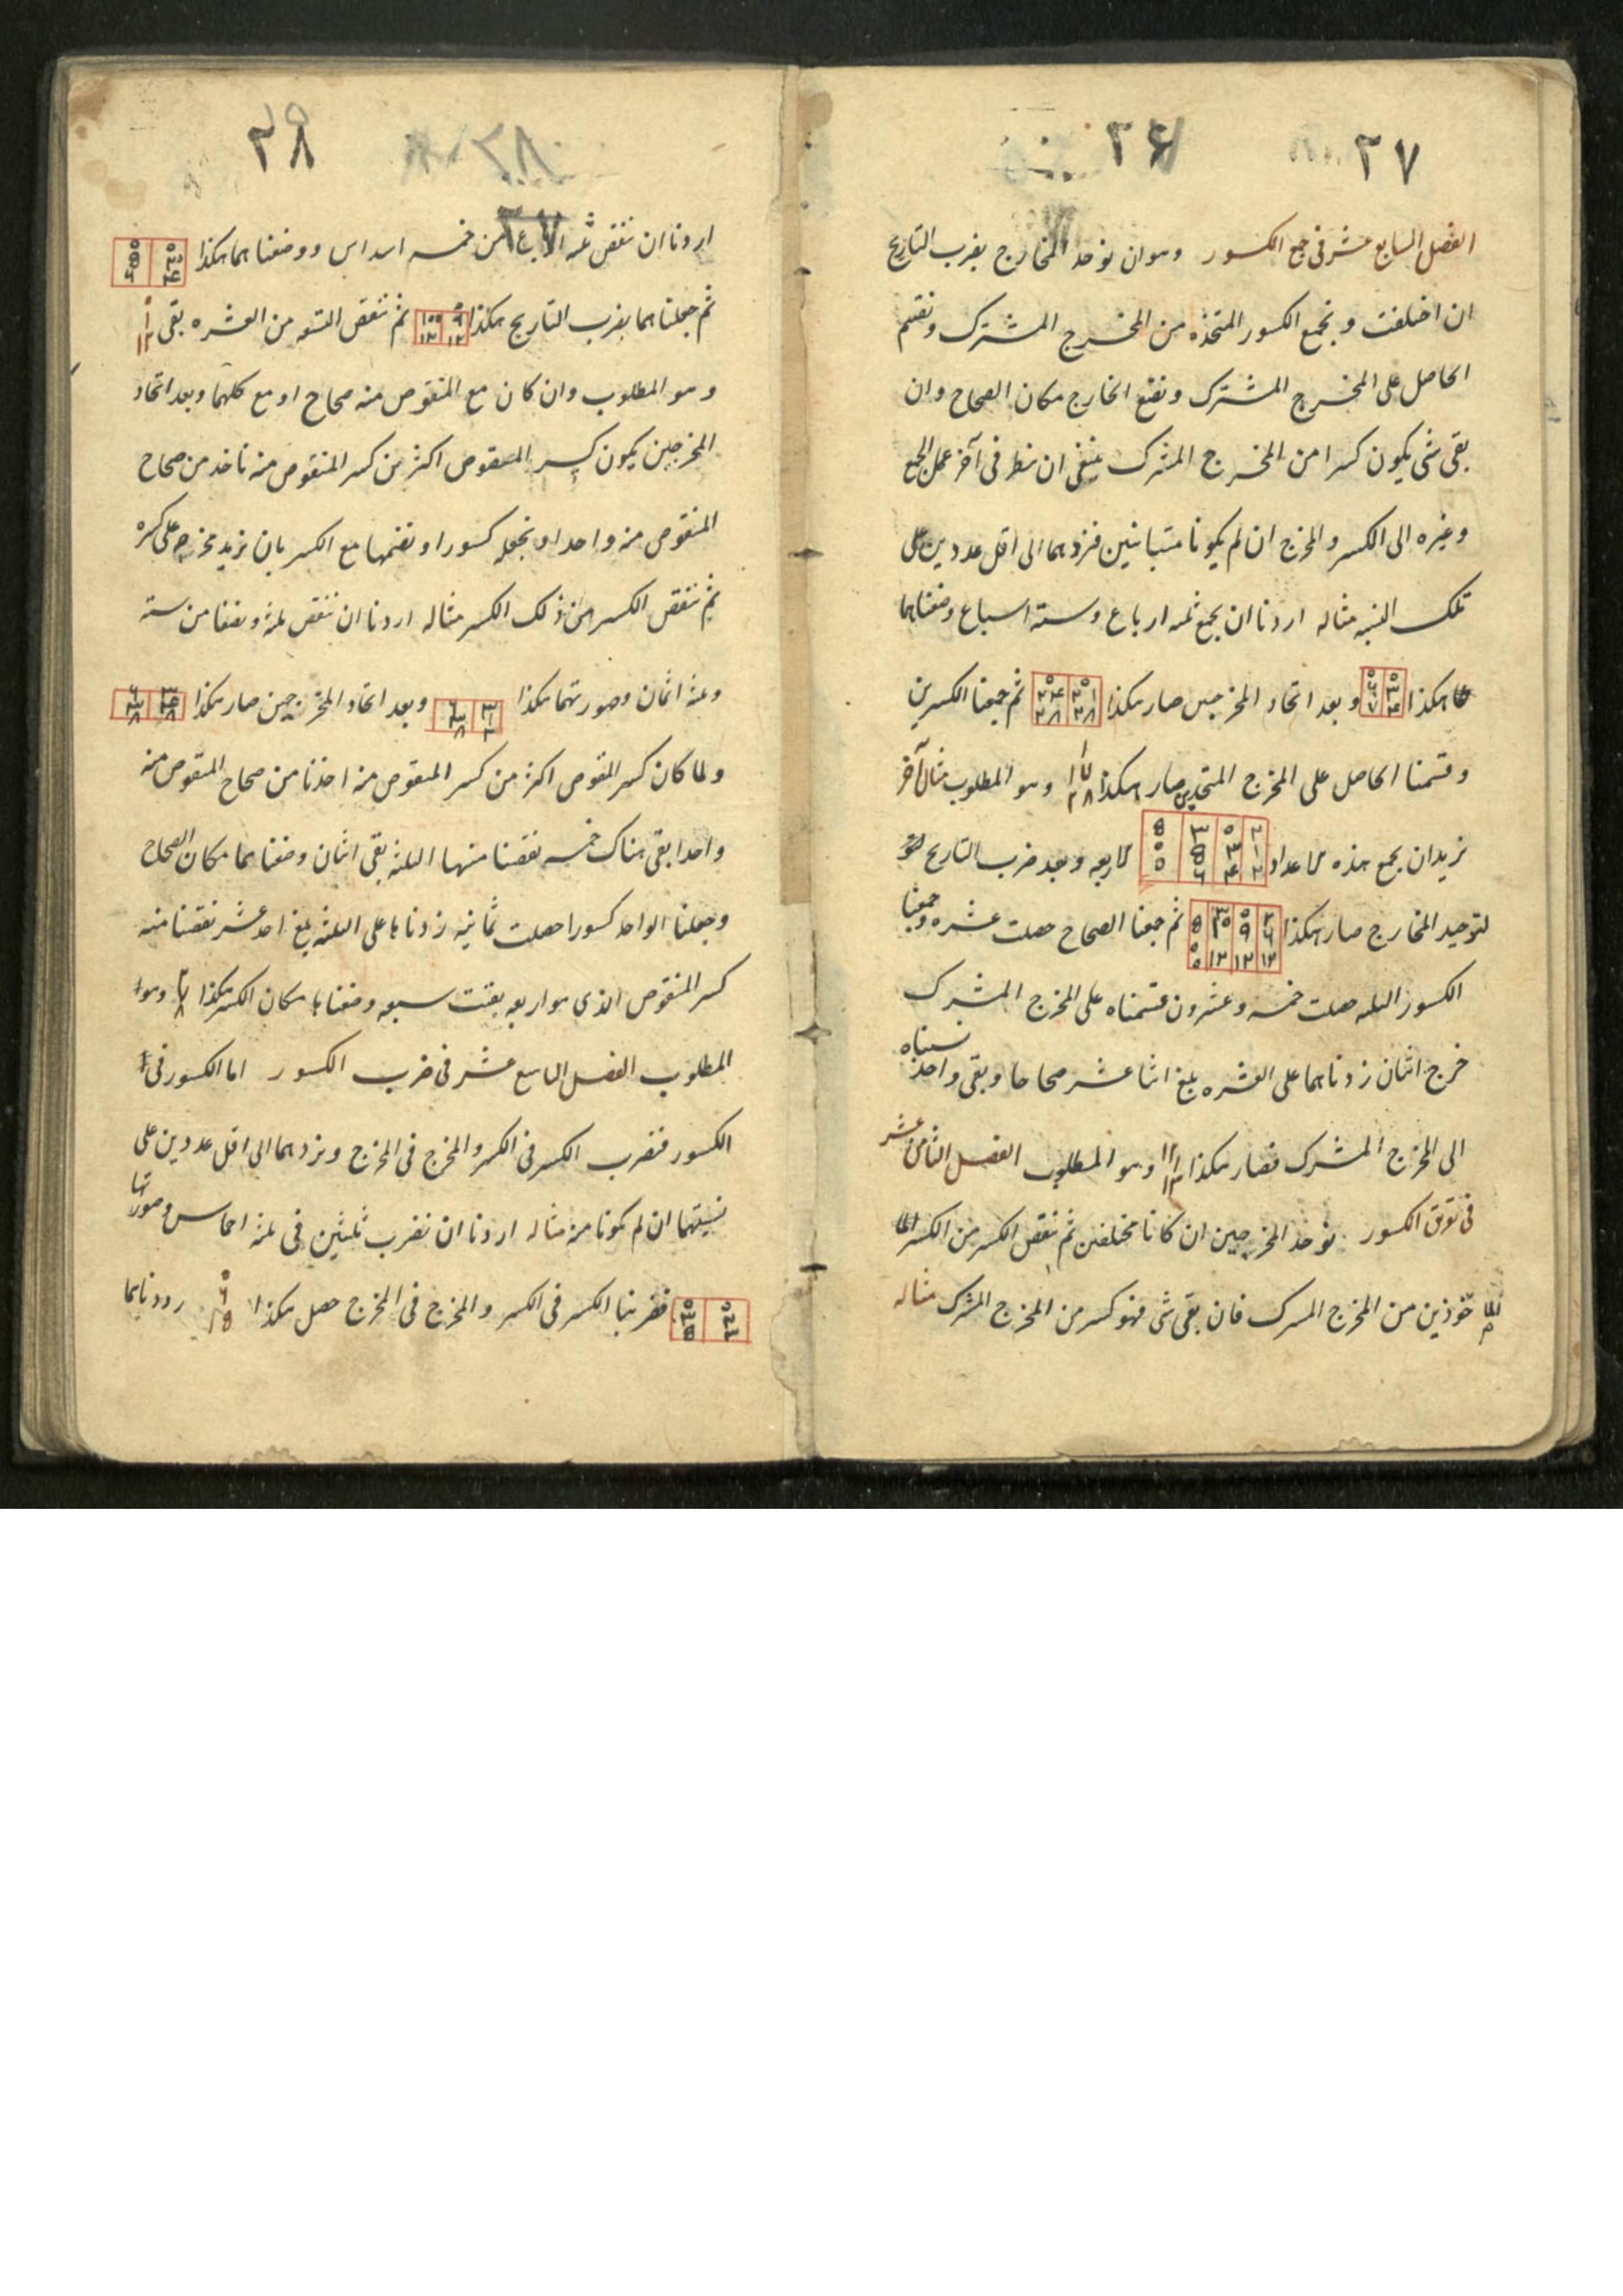 ٢٧ ٢٦
الفصل السابع عشر فی جمع الکسور وهو ان نوخد المخارج بضرب التاریخ
ان اختلفت ونجمع الکسور المتخذه من المخرج المشترک ونقسم
الحاصل علی المخرج المشترک ونضع الخارج مکان الصحاح وان
بقی شی یکون کسرا من المخرج المشترک ینبغی ان ننظر فی آخر عمل الجمع
وغیره الی الکسر والمخرج ان لم یکونا متباینین فنردهما الی اقل عددین علی
تلک النسبه مثاله اردنا ان نجمع ثلثه ارباع وسته اسباع وضعناهما
هکذا ٠ ٣ ٤ ٠ ٦ ٧ وبعد اتحاد المخرجین صار هکذا ٠ ٢١ ٢٨ ٠ ٢٤ ٢٨ ثم جمعنا الکسرین
وقسمنا الحاصل علی المخرج المتحد صار هکذا ١ ١٧ ٢٨ وهو المطلوب مثال آخر
نرید ان نجمع هذه الاعداد ٢ ١ ٢ ٠ ٣ ٤ ٣ ٥ ٦ ٥ ٠ ٠ الاربعه وبعد ضرب التاریخ
لتوحید المخارج صار هکذا ٢ ٦ ١٢ ٠ ٩ ١٢ ٣ ١٠ ١٢ ٥ ٠ ٠ ثم جمعنا الصحاح حصلت عشره وجمعنا
الکسور الثلثه حصلت خمسه وعشرون قسمناه علی المخرج المشترک
خرج اثنان زدناهما علی العشره بلغ اثنا عشر صحاحا وبقی واحد نسبناه
الی المخرج المشترک فصار هکذا ١٢ ١ ١٢ وهو المطلوب الفصل الثامن عشر
فی تفرق الکسور نوخد المخرجین ان کانا مختلفین ثم ننقص الکسر من الکسر
خوذین من المخرج المشرک فان بقی شی فهو کسر من المخرج المشرک مثاله
٢٨ ٢٨ ٢٧
اردنا ان ننقص ثلثه ارباع من خمسه اسداس ووضعناهما هکذا ٠ ٣ ٤ ٠ ٥ ٦
ثم جعلناهما بضرب التاریخ هکذا ٠ ٩ ١٢ ٠ ١٠ ١٢ ثم ننقص التسعه من العشره بقی ٠ ١ ١٢
وهو المطلوب وان کان مع المنقوص منه صحاح او مع کلهما وبعد اتحاد
المخرجین یکون کسر المنقوص اکثر من کسر المنقوص منه ناخد من صحاح
المنقوص منه واحدا ونجعله کسورا ونضمها مع الکسر بان نزید مخرجه علی کسره
ثم ننقص الکسر من ذلک الکسر مثاله اردنا ان ننقص ثلثه ونصفا من سته
وثلثه اثمان وصورتهما هکذا ٣ ١ ٢ ٦ ٣ ٨ وبعد اتحاد المخرجین صار هکذا ٣ ٤ ٨ ٦ ٣ ٨
ولما کان کسر المنقوص اکثر من کسر المنقوص منه اخذنا من صحاح المنقوص منه
واحدا بقی هناک خمسه نقصنا منها الثلثه بقی اثنان وضعناهما مکان الصحاح
وجعلنا الواحد کسورا حصلت ثمانیه زدناها علی الثلثه بلغ احد عشر نقصنا منه
کسر المنقوص الذی هو اربعه بقیت سبعه وضعناها مکان الکسر هکذا ٢ ٧ ٨ وهو
المطلوب الفصل التاسع عشر فی ضرب الکسور اما الکسور فی
الکسور فنضرب الکسر فی الکسر والمخرج فی المخرج ونردهما الی اقل عددین علی
نسبتهما ان لم یکونا منه مثاله اردنا ان نضرب ثلثین فی ثلثه اخماس وصورتها
٠ ٢ ٣ ٠ ٣ ٥ فضربنا الکسر فی الکسر والمخرج فی المخرج حصل هکذا ٠ ٦ ١٥ رددناهما